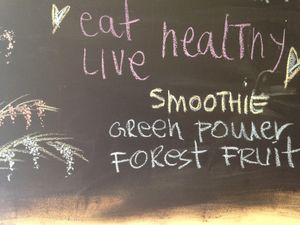 eat healthy
Live
SMOOTHIE
Green Power
FOREST FRUIT